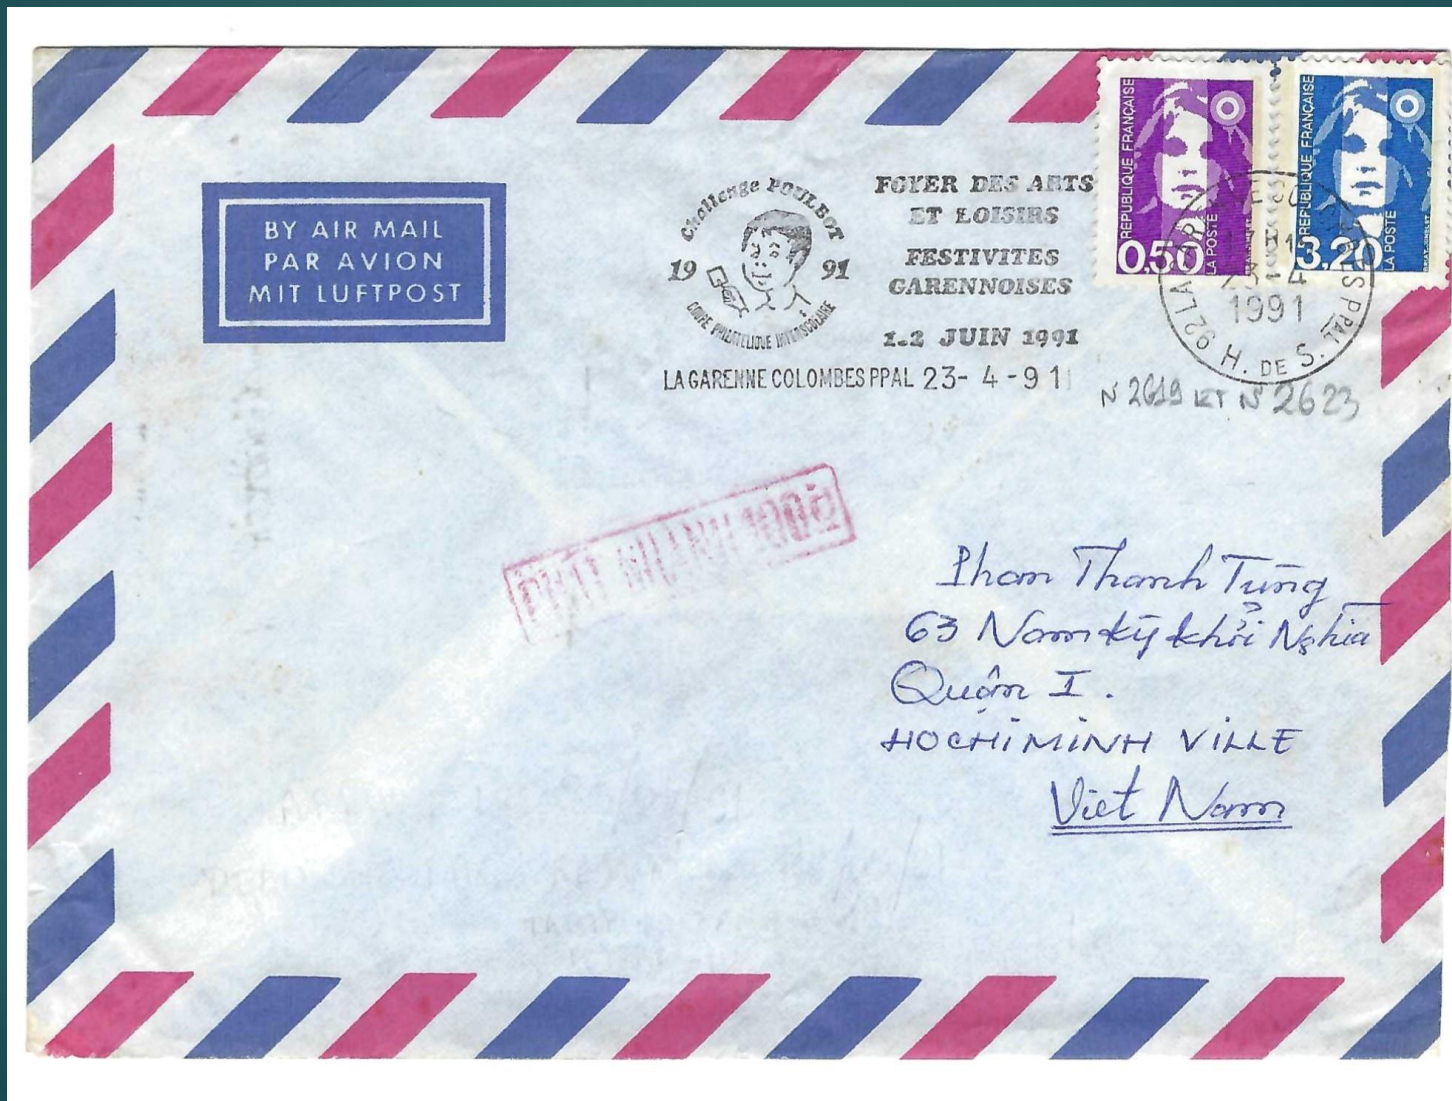 BY AIR MAIL
PAR AVION
MIT LUFTPOST
Challenge POULBOT
19 91
COUPE PHILATELIQUE INTERSCOLAIRE
FOYER DES ARTS
ET LOISIRS
FESTIVITES
GARENNOISES
1.2 JUIN 1991
LA GARENNE COLOMBES PPAL 23-4-91
REPUBLIQUE FRANÇAISE
0,50
LA POSTE
REPUBLIQUE FRANÇAISE
3,20
LA POSTE
92 LA PPAL
23 4
1991
H. DE S.
N 2619 ET N° 2623
Phan Thanh Tùng
63 Nam kỳ khởi Nghĩa
Quận I.
HOCHIMINH VILLE
Viet Nam